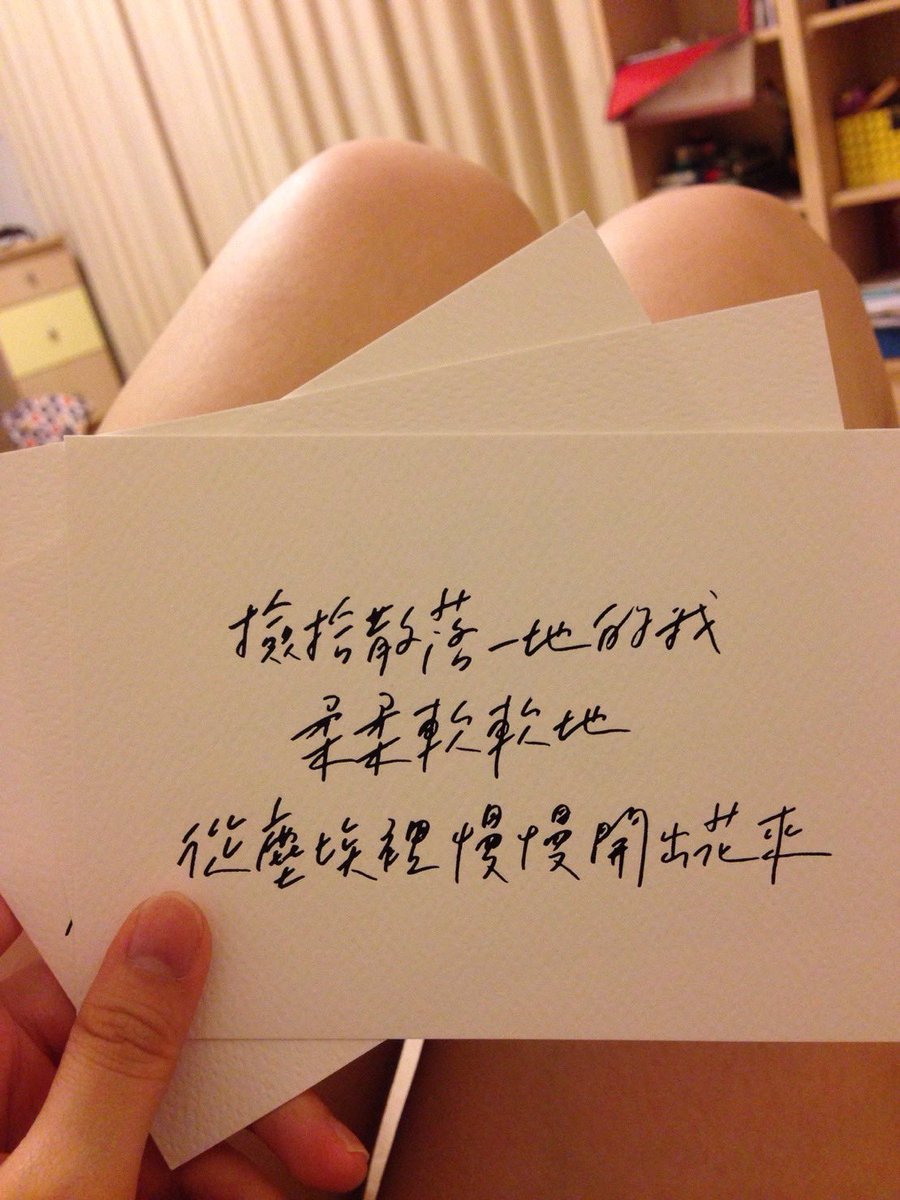 撿拾散落一地的我
柔柔軟軟地
從塵埃裡慢慢開出花來